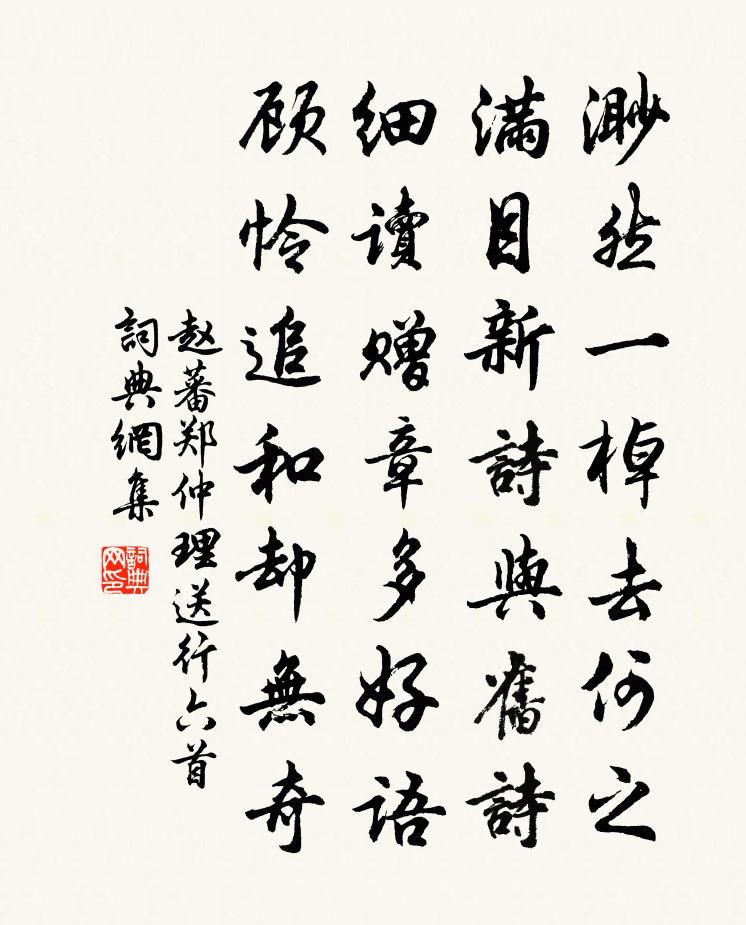 渺然一棹去何之
滿目新詩與舊詩
细读贈章多好语
顾怜追和却無奇
赵蕃郑仲理送行六首
詞典網集
詞典网印